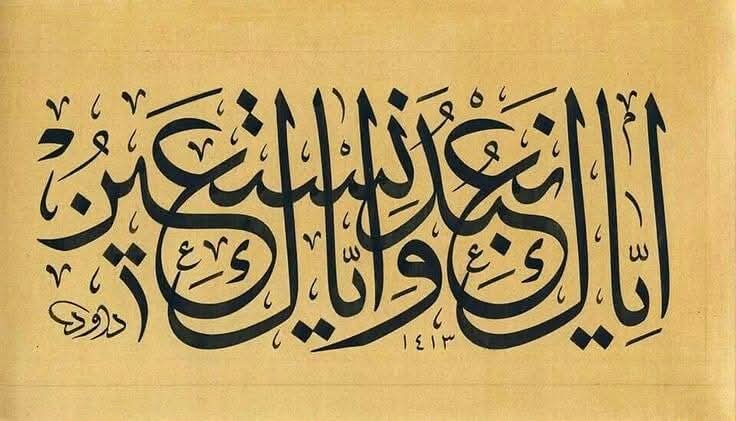 اِيَّاكَ نَعْبُدُ وَاِيَّاكَ نَسْتَعِينُ
١٤١٣
داود